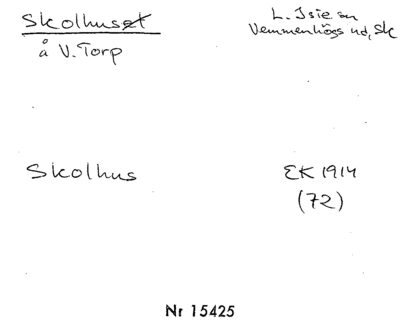 Skolhuset
L. Isie sn
å V. Torp
Vemmenhögs hd, Sk
Skolhus
EK 1914
(72)
Nr 15425